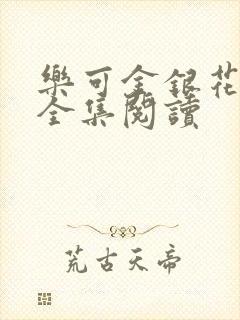 樂可金銀花
全集閱讀
荒古天帝